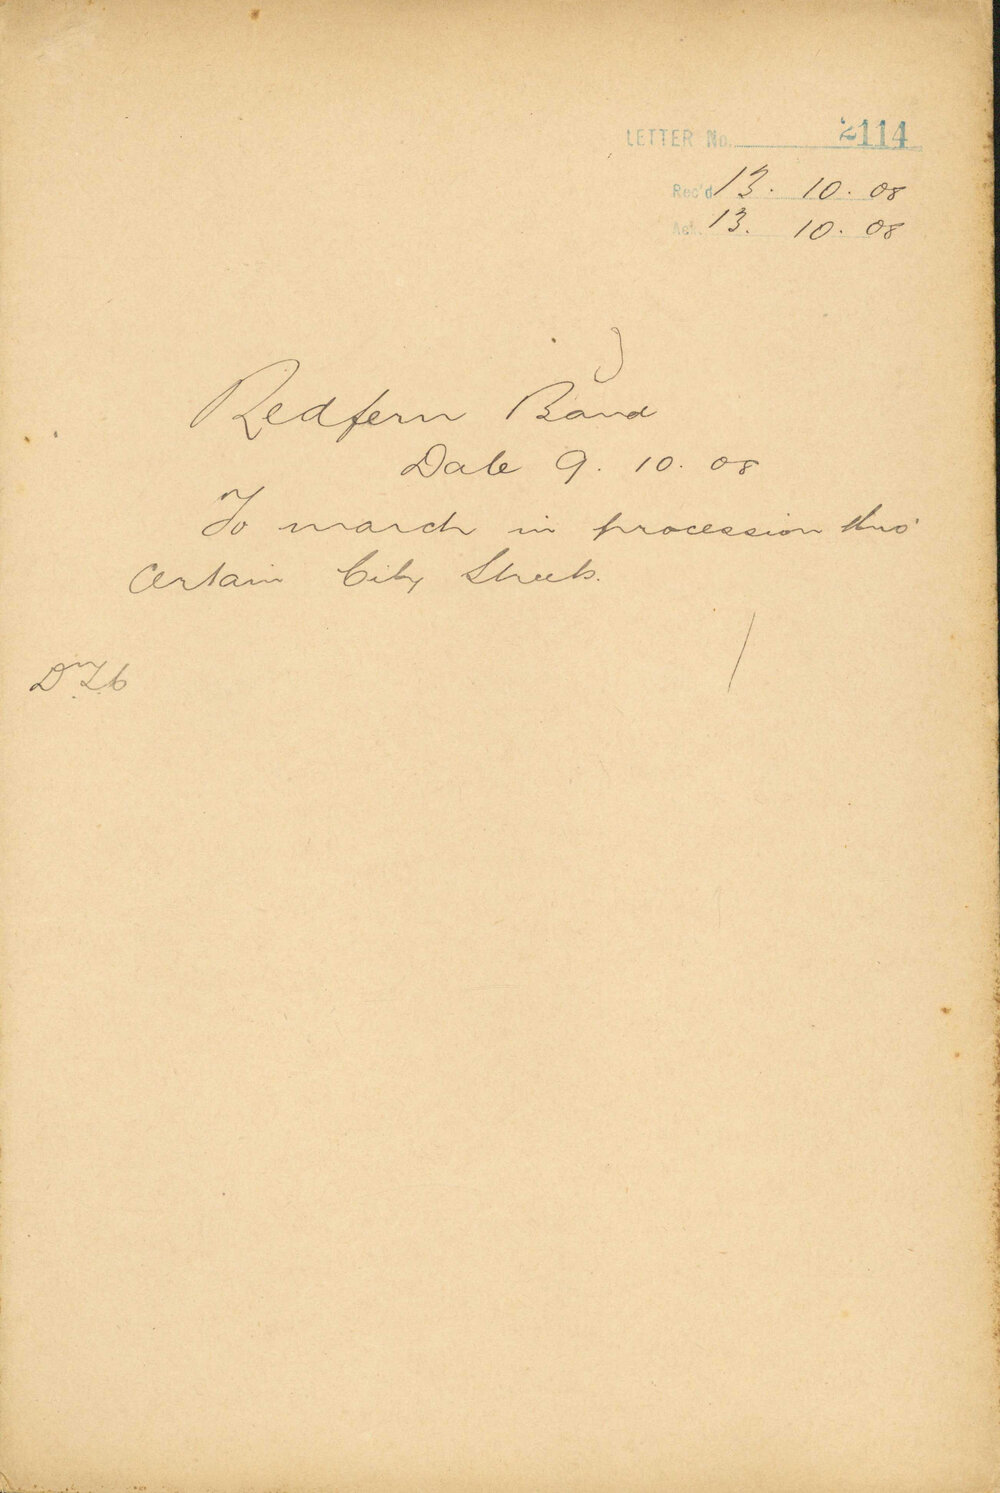 LETTER No. 2114
Rec'd 13. 10. 08
Ack. 13. 10. 08
Redfern Band
Date 9. 10. 08
To march in procession thro'
Certain City Streets.